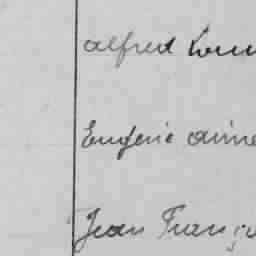 alfred Loui
Eugénie aimé
Jean Franço